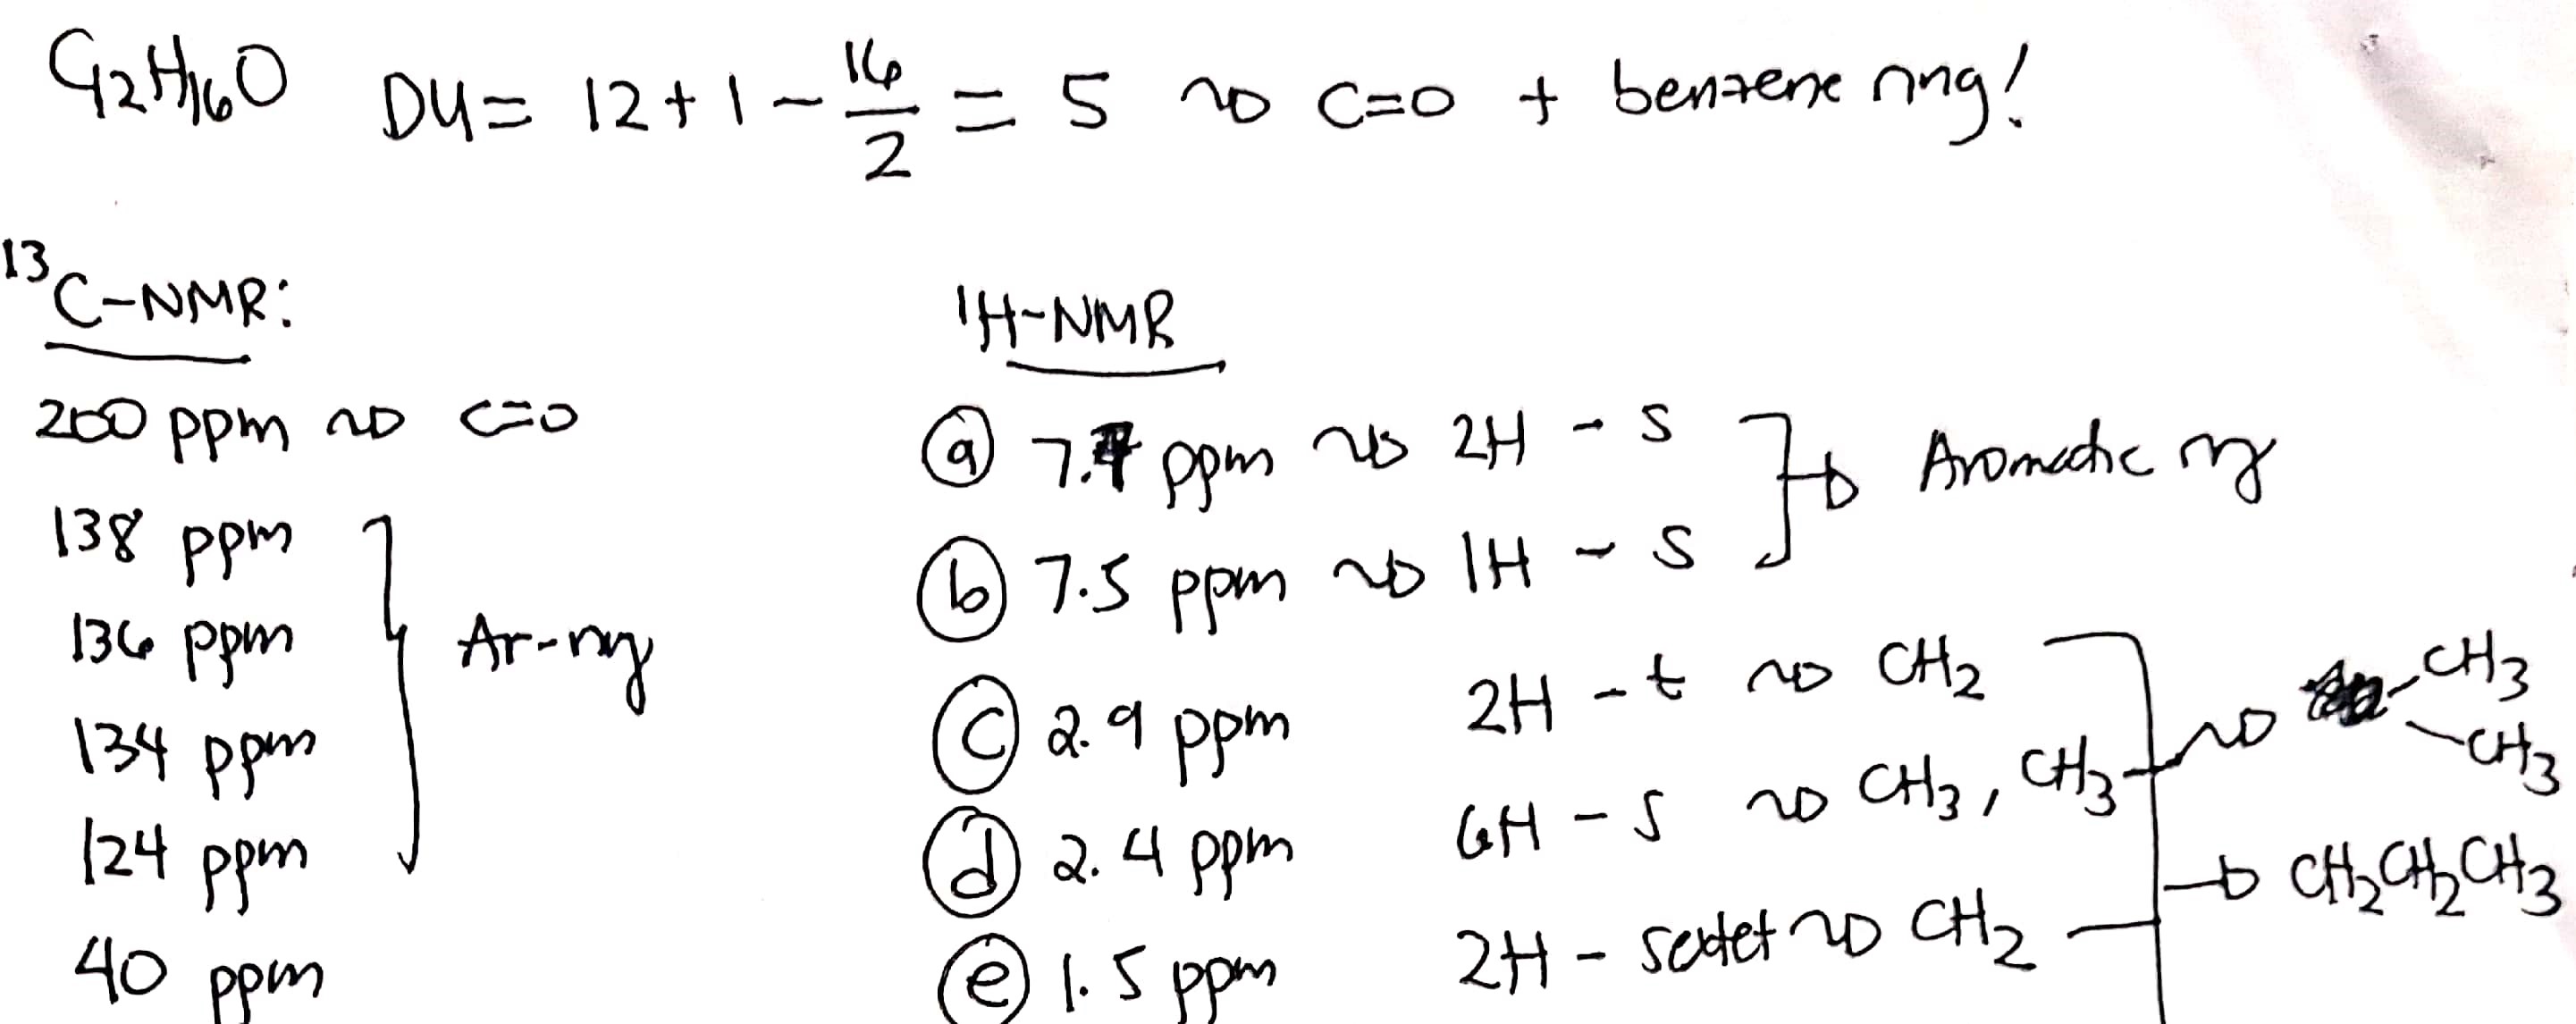 C12H16O DU= 12+1-16/2 = 5 ~> C=O + benzene ring!
13C-NMR:
1H-NMR
200 ppm ~> C=O
138 ppm
136 ppm
134 ppm
124 ppm
Ar-ring
40 ppm
(a) 7.7 ppm ~> 2H - s
(b) 7.5 ppm ~> 1H - s
Aromatic ring
(c) 2.9 ppm 2H - t ~> CH2
(d) 2.4 ppm 6H - s ~> CH3, CH3
~> -CH3
-CH3
(e) 1.5 ppm 2H - sextet ~> CH2
→ CH2CH2CH3